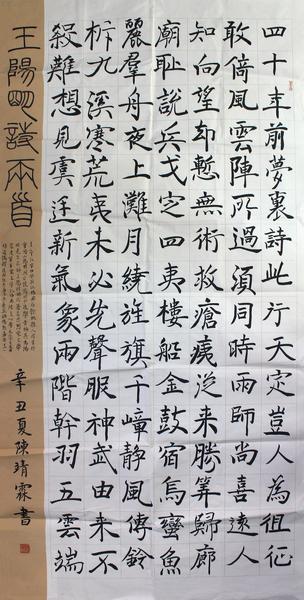 四十年前夢裏詩此行天定豈人為徂征
敢倚風雲陣所過須同時雨師尚喜遠人
知向望却慙無術救瘡痍從来勝筭歸廊
廟耻說兵戈定四夷樓船金鼓宿烏蠻魚
麗羣舟夜上灘月繞旌旗千嶂静風傳鈴
柝九溪寒荒夷未必先聲服神武由来不
殺難想見虞廷新氣象兩階幹羽五雲端
王陽明詩兩首
辛丑夏陳靖霖書